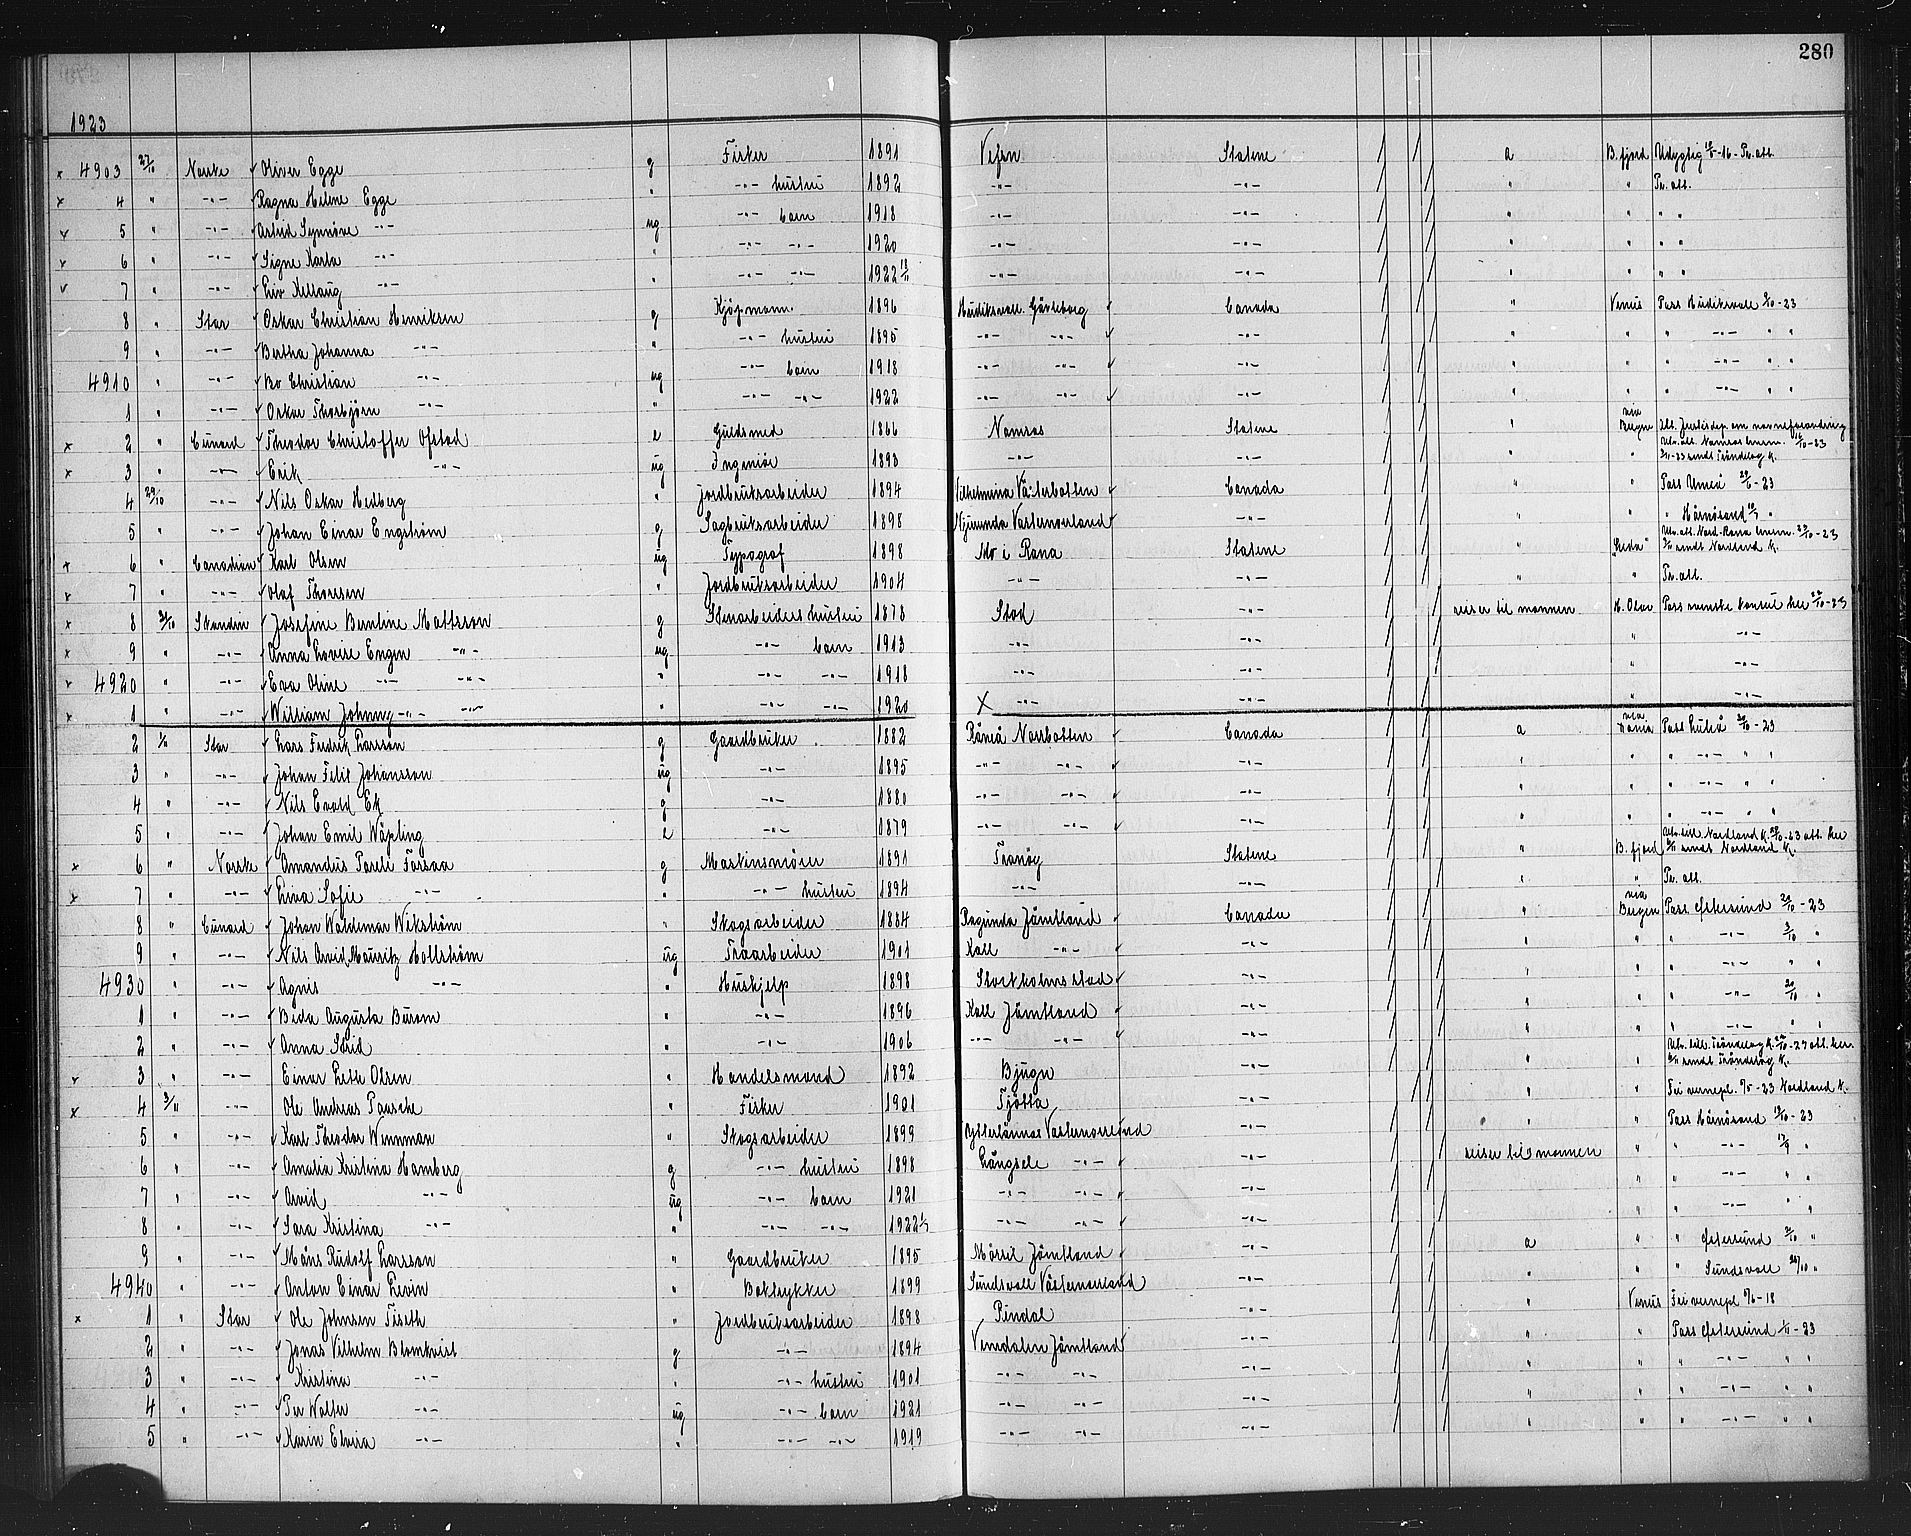 280
1923
x 4903 27/10 Norske Oliver Egge g Fisker 1891 Vefsn Statene a B.fjord Udygtig 12/5-16 - Pr. att.
x 4 " -"- Ragna Helene Egge " -"- hustru 1892 -"- -"- " " Pr. att.
5 " -"- Astrid Synnöve -"- ug -"- barn 1918 -"- -"- " " " "
6 " -"- Signe Karla -"- " -"- -"- 1920 -"- -"- " " " "
7 " -"- Liv -"- " -"- -"- 1922 -"- -"- " " " "
8 " Star Oskar Christian Henriksen g Kjöpmann 1896 Hudiksvall Gävleborg Canada " Venus Pass Hudiksvall 2/10-23
9 " -"- Bertha Johanna -"- " -"- hustru 1895 -"- -"- -"- " " " -"- " "
4910 " -"- Bo Christian -"- ug -"- barn 1918 -"- -"- -"- " " " -"- " "
1 " -"- Oskar Thorbjörn -"- " -"- -"- 1922 -"- -"- -"- " " " -"- " "
x 2 " Cunard Theodor Christoffer Ofstad e Guldsmed 1866 Namsos Statene " via Bergen Justisdep. om navneforandring
Utv. att. Namsos 16/10-23
x 3 " -"- Erik -"- ug Ingeniör 1893 -"- -"- " " sendt Tröndelag K.
4 29/10 -"- Nils Oskar Hedberg " jordbruksarbeider 1894 Vilhelmina Västerbotten Canada " " Pass Umeå -23
5 " -"- Johan Einar Engström g Sagbruksarbeider 1898 Västernorrland -"- " " " Härnösand "
Utv. att. Nord-Rana -23
x 6 " Canadian Karl Olsen ug Typograf 1898 Mo i Rana Statene " "Leda" sendt Nordland K.
7 " -"- Olaf Thoresen " Jordbruksarbeider 1904 -"- -"- " " Pr. att.
x 8 31/10 Skandin Josefine Berntine Mattsson g Stenarbeiders hustru 1878 Stod -"- reiser til mannen H. Olav Pass svenske konsul her 22/10-23
x 9 " -"- Anna Lovise Engen -"- ug -"- barn 1913 -"- -"- " -"-
4920 " -"- Eva Oline -"- -"- " -"- -"- 1918 -"- -"- " -"-
x 1 " -"- William Johnny -"- -"- " -"- -"- 1920 X -"- -"- " -"-
2 1/11 Star Lars Fredrik Larsson g Gaardbruker 1882 Råneå Norrbotten Canada a via Pass Luleå -23
3 " -"- Johan Felix Johansson ug -"- 1895 -"- -"- -"- " " " -"- " "
4 " -"- Nils Evald Ek g -"- 1880 -"- -"- -"- " " " -"- " "
5 " -"- Johan Emil Wäpling e -"- 1879 -"- -"- -"- " " " -"- " "
Utv. till. Nordland K. -23 att. her
x 6 " Norske Amandus Parelli Forsaa g Maskinsmörer 1891 Tranöy Statene " B.fjord sendt Nordland K.
x 7 " -"- Liva Sofie -"- " -"- hustru 1894 -"- -"- " " Pr. att.
8 " Cunard Johan Waldemar Wikström " Skogsarbeider 1884 Ragunda Jämtland Canada " via Bergen Pass Östersund -23
9 " -"- Nils Arvid Mauritz Hollström ug Træarbeider 1901 Kall -"- -"- " " " -"- "
4930 " -"- Agnes -"- " Hushjelp 1898 Stockholms stad -"- " " " -"- "
1 " -"- Beda Augusta Burom " -"- 1896 Kall Jämtland -"- " " " -"- 20/10 "
2 " -"- Anna Strid " -"- 1906 -"- -"- -"- " " " -"- " "
Utv. till. Tröndelag K. att. her.
3 " -"- Einar Olsen " Handelsmand 1892 Bjugn -"- " " sendt Tröndelag K.
x 4 3/11 -"- Ole Andreas Paasche " Fisker 1901 Tjötta -"- " " Fri vernepl. -23 Nordland K.
5 " -"- Karl Theodor Wennman " Skogsarbeider 1899 Ytterlännäs Västernorrland -"- " " Pass Härnösand -23
6 " -"- Amalia Kristina Hamberg g -"- hustru 1898 Långsele -"- -"- reiser til mannen " " -"- "
7 " -"- Arvid -"- ug -"- barn 1921 -"- -"- -"- " " -"- " "
8 " -"- Sara Kristina -"- " -"- -"- 1922 -"- -"- -"- " " -"- "
9 " -"- Måns Rudolf Larsson " Gaardbruker 1895 Mörsil Jämtland -"- a " " Östersund "
4940 " -"- Anton Einar Levin " Boktrykker 1899 Sundsvall Västernorrland -"- " " " Sundsvall "
x 1 " Star Ole Johnsen Fiseth " Jordbruksarbeider 1898 Rindal -"- " Venus Fri vernepl. -18
2 " -"- Jonas Vilhelm Blomkvist g -"- 1894 Vemdalen Jämtland -"- " " Pass Östersund -23
3 " -"- Kristina -"- " -"- hustru 1901 -"- -"- -"- " " " -"- " "
4 " -"- Per Walter -"- ug -"- barn 1921 -"- -"- -"- " " " -"- " "
5 " -"- Karin Elvira -"- " -"- -"- 1919 -"- -"- -"- " " " -"- " "